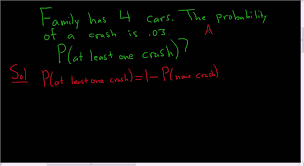 Family has 4 cars. The probability
of a crash is .03. A
P(at least one crash)?
Sol P(at least one crash) = 1 - P(none crash)